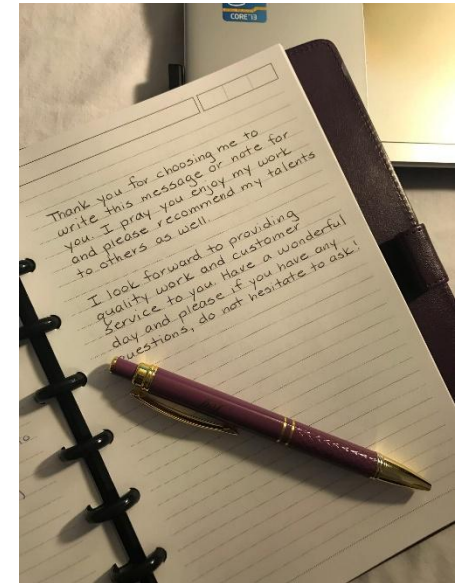 CORE i3
Thank you for choosing me to
write this message or note for
you. I pray you enjoy my work
and please recommend my talents
to others as well.
I look forward to providing
quality work and customer
service to you. Have a wonderful
day and please if you have any
questions, do not hesitate to ask!